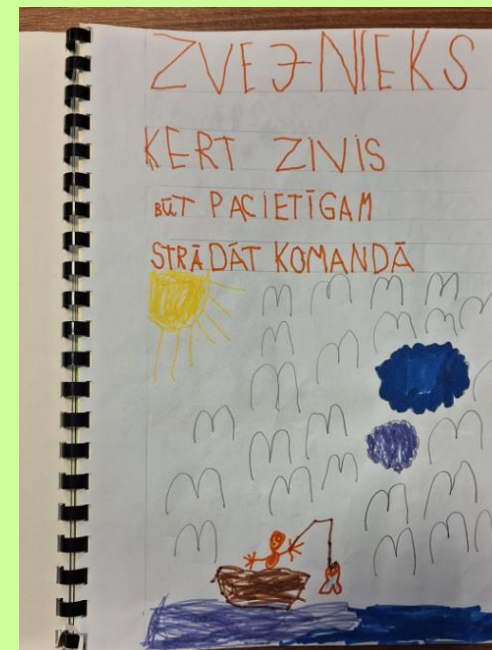 ZVEJNIEKS
ĶERT ZIVIS
BŪT PACIETĪGAM
STRĀDĀT KOMANDĀ